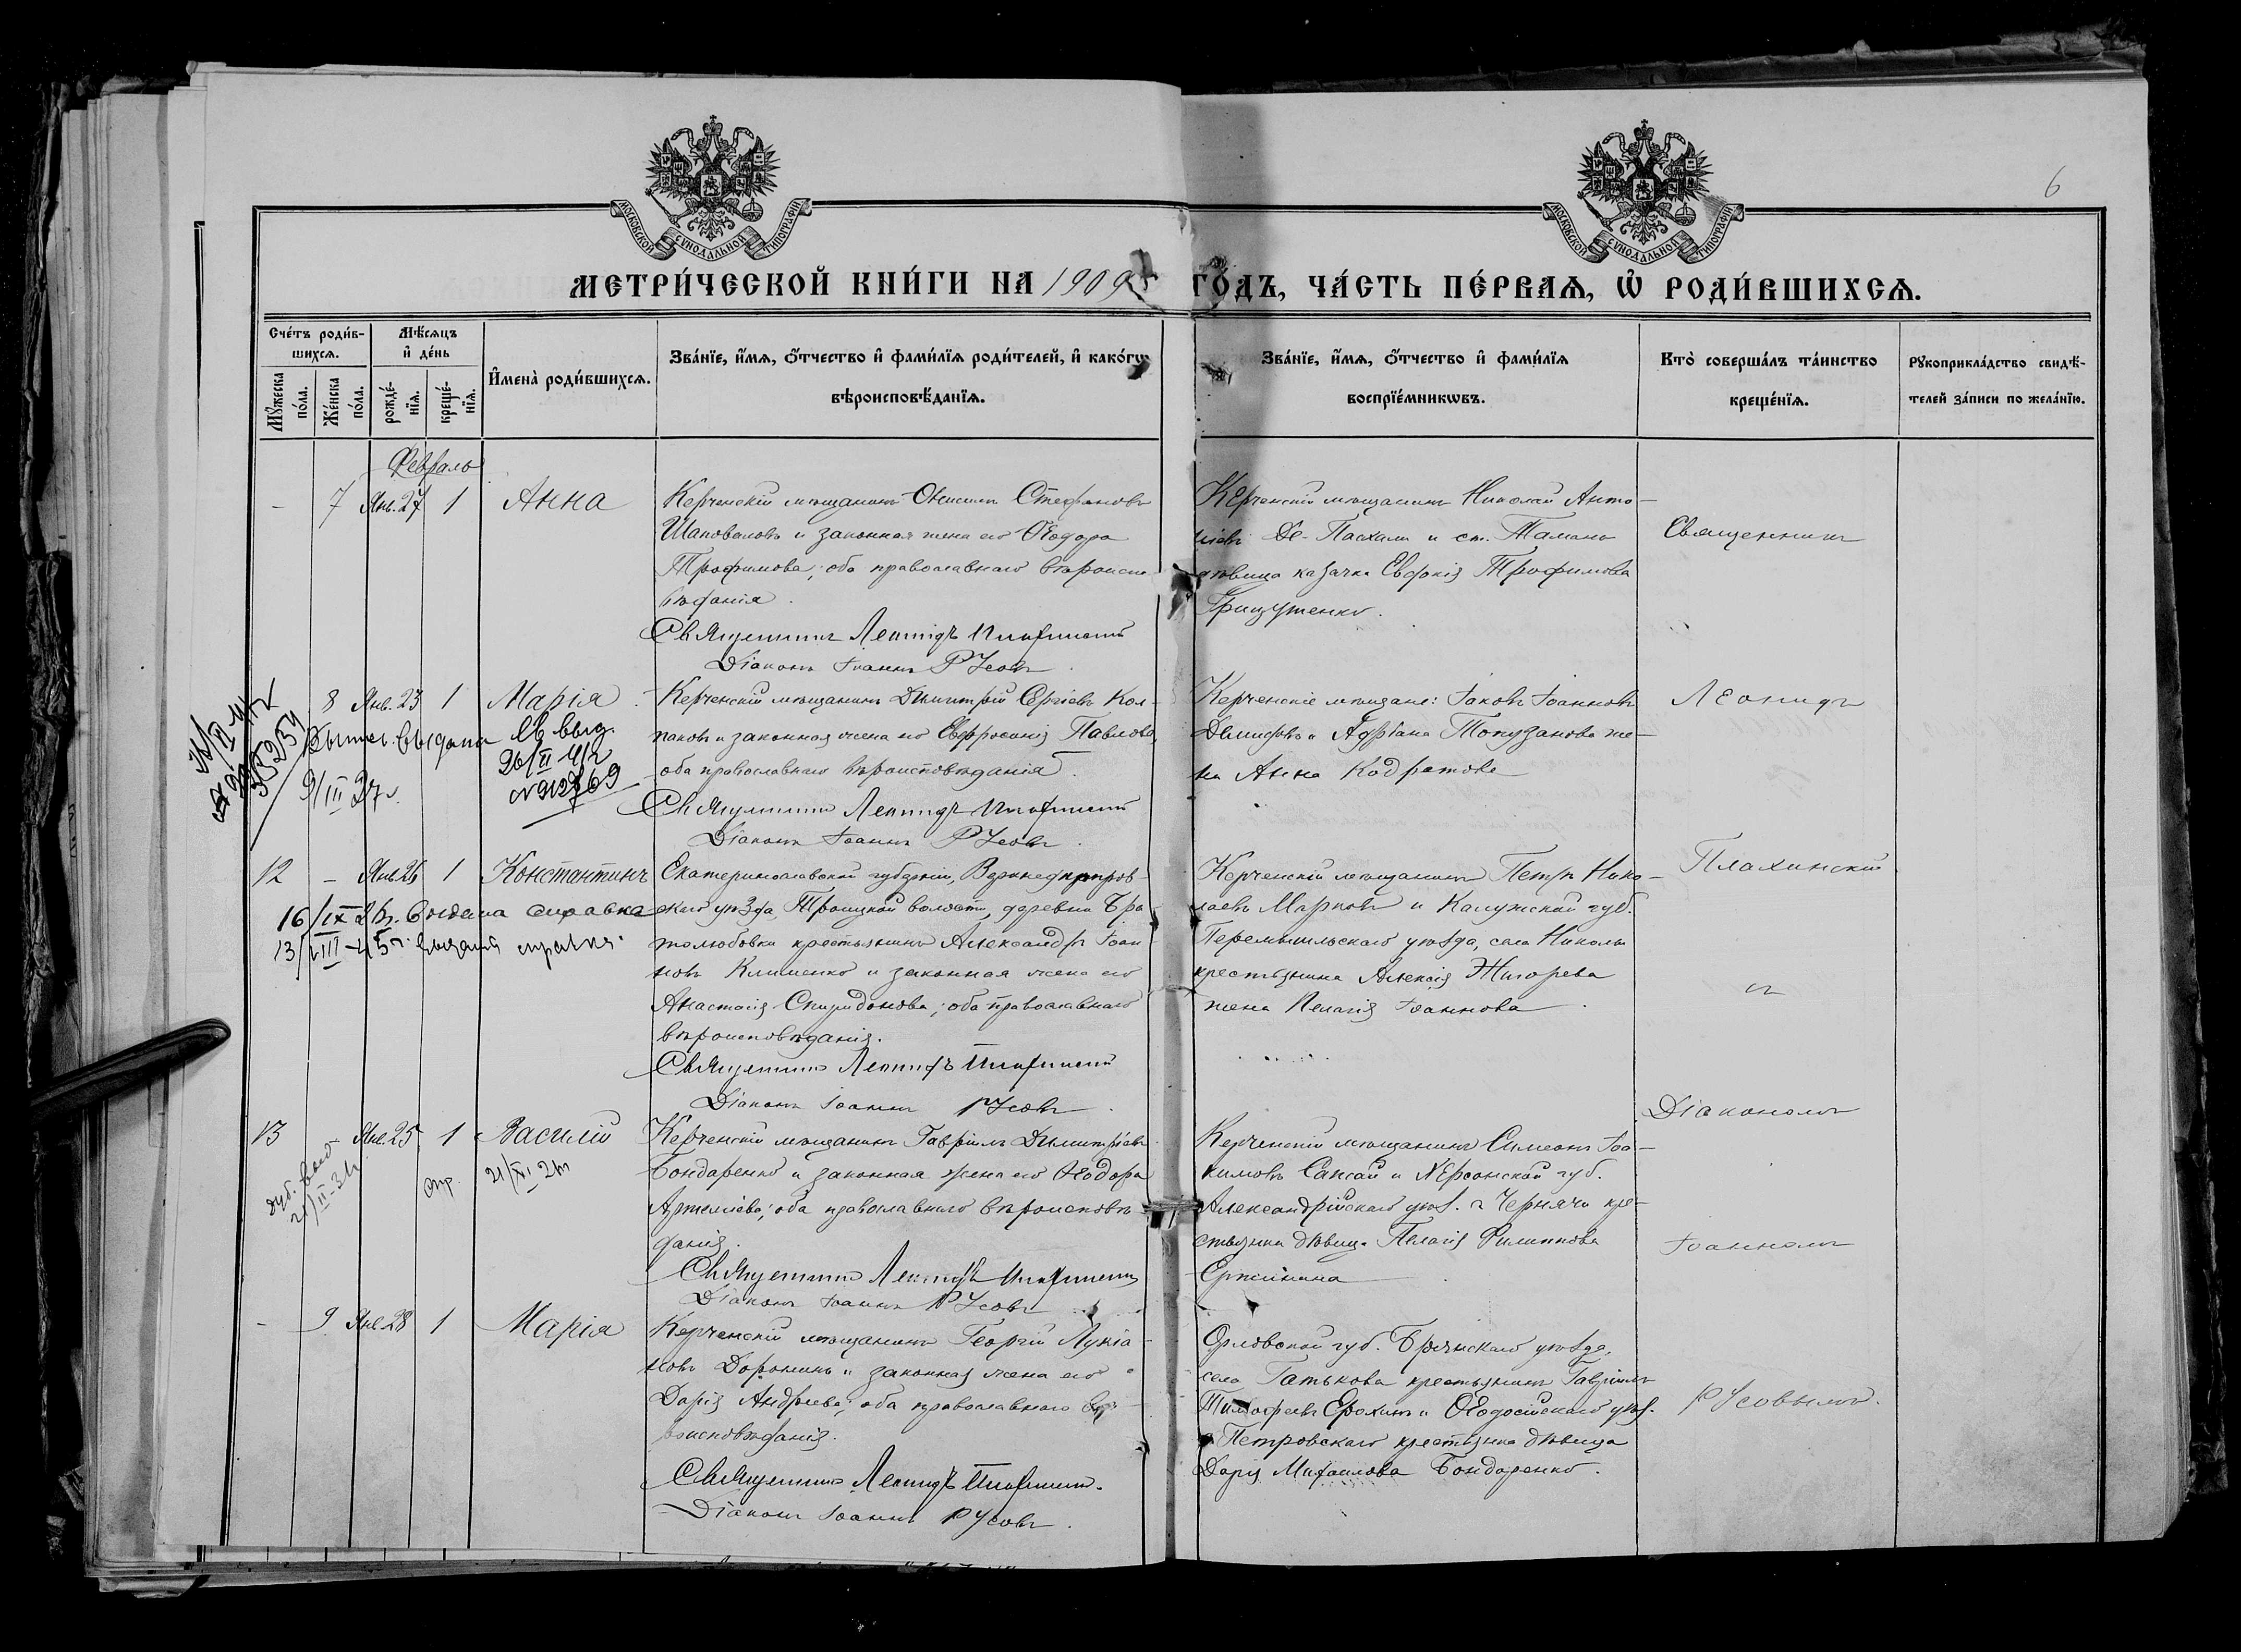 6
МОСКОВСКОЙ СѴНОДАЛЬНОЙ ТИПОГРАФІИ
МОСКОВСКОЙ СѴНОДАЛЬНОЙ ТИПОГРАФІИ
МЕТРИ́ЧЕСКОЙ КНИ́ГИ НА 1909 ГО́ДЪ, ЧА́СТЬ ПЕ́РВАѦ, Ѡ҆ РОДИ́ВШИХСѦ.
Сче́тъ роди́в-
шихсѧ.
Мꙋ́жеска по́ла.
Же́нска по́ла.
Мѣ́сѧцъ
и҆ де́нь
рожде́-
нїѧ.
креще́-
нїѧ.
И҆мена̀ роди́вшихсѧ.
Зва́нїе, и҆́мѧ, ѻ҆́тчество и҆ фами́лїѧ роди́телей, и҆ како́гѡ
вѣроисповѣ́данїѧ.
Зва́нїе, и҆́мѧ, ѻ҆́тчество и҆ фами́лїѧ
воспрїе́мникѡвъ.
Кто̀ соверша́лъ та́инство
креще́нїѧ.
Рꙋкоприкла́дство свидѣ́-
телей за́писи по жела́нїю.
Февраль
- 7 Янв. 27 1 Анна
Керченскій мѣщанинъ Онисимъ Стефановъ
Шаповаловъ и законная жена его Ѳеодора
Трофимова; оба православнаго вѣроиспо-
вѣданія.
Священникъ Леонидъ Плахинскій
Діаконъ Іоаннъ Русовъ.
Керченскій мѣщанинъ Николай Анто-
ніевъ Де-Пасхали и ст. Тамань
дѣвица казачка Евдокія Трофимова
Грицутенко.
Священникъ
8 Янв. 23 1 Марія
Керченскій мѣщанинъ Димитрій Сергіевъ Кол-
паковъ и законная жена его Евфросинія Павлова,
оба православнаго вѣроисповѣданія.
Священникъ Леонидъ Плахинскій
Діаконъ Іоаннъ Русовъ.
Керченскіе мѣщане: Іаковъ Іоанновъ
Демидовъ и Адріана Топузанова же-
на Анна Кодратова
Леонидъ
выдана
9/III 27г.
св выд.
26/II 42
№ 912769
12 - Янв. 26 1 Константинъ
Екатеринославской губерніи, Верхнеднѣпров-
скаго уѣзда, Троицкой волости, деревни Бра-
толюбовки крестьянинъ Александръ Іоан-
новъ Клименко и законная жена его
Анастасія Спиридонова; оба православнаго
вѣроисповѣданія.
Священникъ Леонидъ Плахинскій
Діаконъ Іоаннъ Русовъ.
Керченскій мѣщанинъ Петръ Нико-
лаевъ Марковъ и Калужской губ.
Перемышльскаго уѣзда, села Николы
крестьянина Алексія Жигорева
жена Пелагія Іоаннова.
Плахинскій
съ
16/IX 26г. выдана справка
13/VIII-45г. выдана справка.
13 Янв. 25 1 Василій
Керченскій мѣщанинъ Гавріилъ Димитріевъ
Бондаренко и законная жена его Ѳеодора
Артеміева; оба православнаго вѣроисповѣ-
данія.
Священникъ Леонидъ Плахинскій
Діаконъ Іоаннъ Русовъ
Керченскій мѣщанинъ Симеонъ Іоа-
кимовъ Сапсай и Херсонской губ.
Александрійскаго уѣз. Чернячи кре-
стьянка дѣвица Пелагія Филиппова
Діакономъ
Іоанномъ
спр. 21/XI 26г
- 9 Янв. 28 1 Марія
Керченскій мѣщанинъ Георгій Лукіа-
новъ Доронинъ и законная жена его
Дарія Андреева; оба православнаго вѣ-
роисповѣданія.
Священникъ Леонидъ Плахинскій.
Діаконъ Іоаннъ Русовъ.
Орловской губ. Брянскаго уѣзда,
села Гатькова крестьянинъ Гавріилъ
Тимофеевъ Ерохинъ и Ѳеодосійскаго уѣз.
с. Петровскаго крестьянка дѣвица
Дарія Михаилова Бондаренко.
Русовымъ.